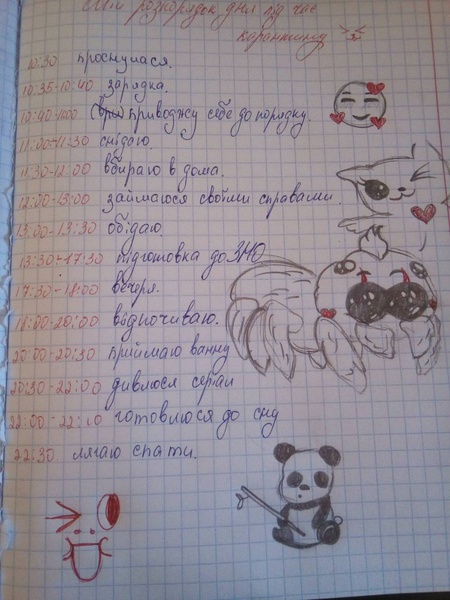 Мій розпорядок дня під час
карантину
10:30 проснулася.
10:35-10:40 зарядка.
10:40-11:00 приводжу себе до порядку.
11:00-11:30 снідаю.
11:30-12:00 вбираю в дома.
12:00-13:00 займаюся своїми справами.
13:00-13:30 обідаю.
13:30-17:30 підготовка до ЗНО
17:30-18:00 вечеря.
18:00-20:00 відпочиваю.
20:00-20:30 приймаю ванну
20:30-22:00 дивлюся серіал
22:00-22:10 готовлюся до сну
22:30 лягаю спати.